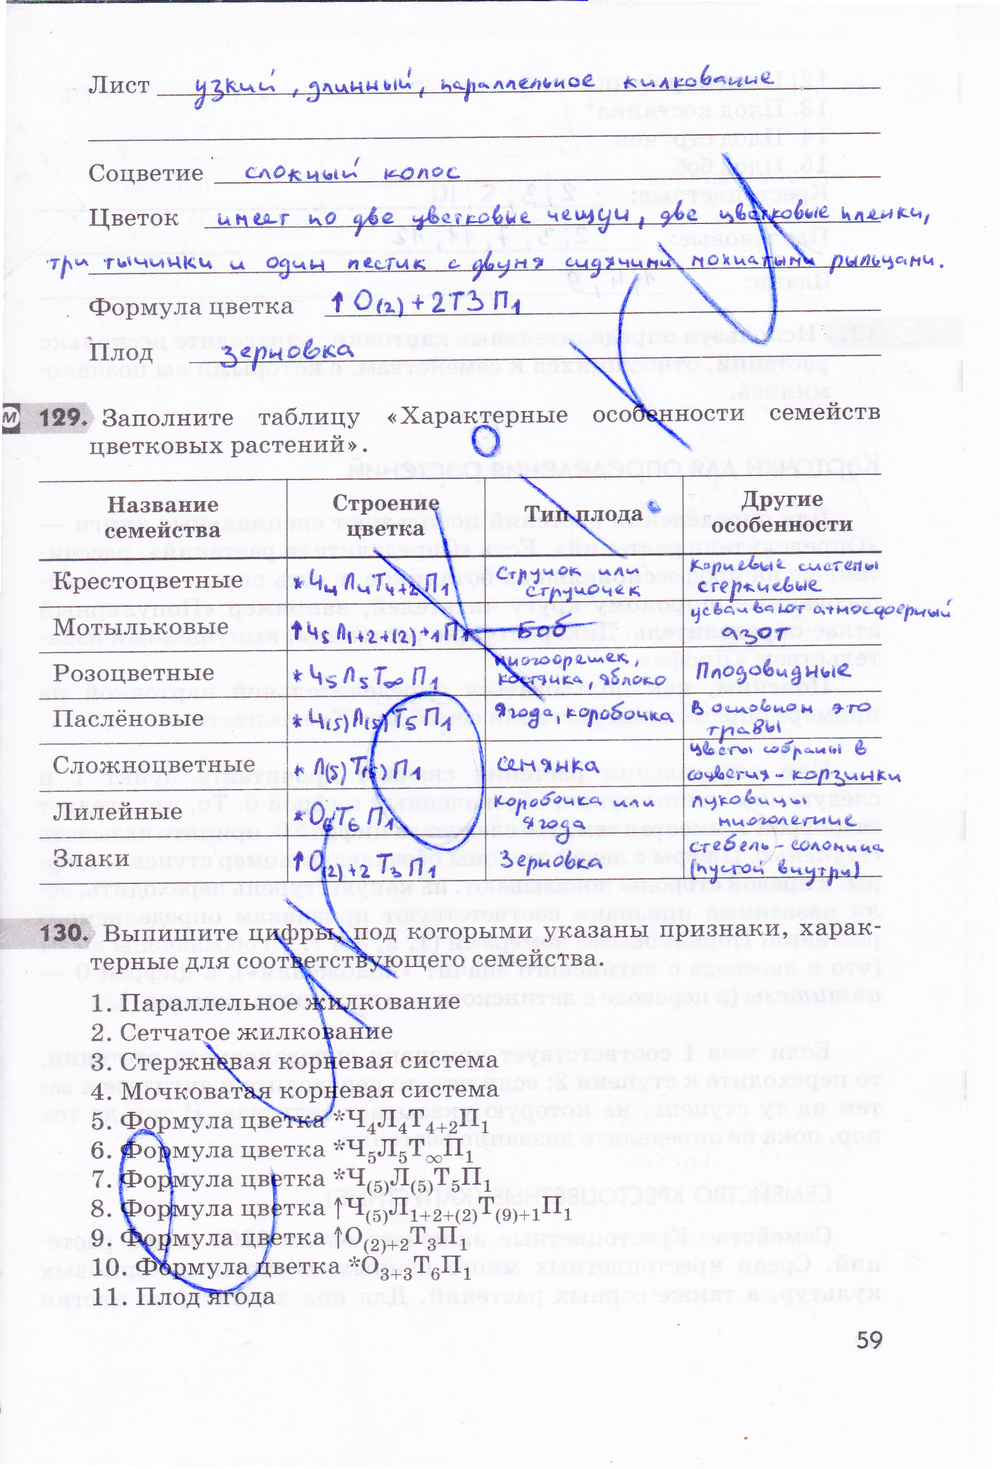 Лист узкий, длинный, параллельное жилкование
Соцветие сложный колос
Цветок имеет по две цветковые чешуи, две цветковые пленки,
три тычинки и один пестик с двумя сидячими мохнатыми рыльцами.
Формула цветка ↑О(2)+2Т3П1
Плод зерновка
М 129. Заполните таблицу «Характерные особенности семейств
цветковых растений».
Название семейства | Строение цветка | Тип плода | Другие особенности
Крестоцветные | *Ч4Л4Т4+2П1 | Стручок или стручочек | Корневые системы стержневые
Мотыльковые | Боб | усваивают атмосферный азот
Розоцветные | *Ч5Л5Т∞П1 | многоорешек, костянка, яблоко | Плодовидные
Паслёновые | *Ч(5)Л(5)Т5П1 | Ягода, коробочка | В основном это травы
Сложноцветные | *Л(5)Т(5)П1 | семянка | Цветы собраны в соцветия - корзинки
Лилейные | *О6Т6П1 | коробочка или ягода | луковицы многолетние
Злаки | ↑О(2)+2Т3П1 | Зерновка | стебель - соломина (пустой внутри)
130. Выпишите цифры, под которыми указаны признаки, харак-
терные для соответствующего семейства.
1. Параллельное жилкование
2. Сетчатое жилкование
3. Стержневая корневая система
4. Мочковатая корневая система
5. Формула цветка *Ч4Л4Т4+2П1
6. Формула цветка *Ч5Л5Т∞П1
7. Формула цветка *Ч(5)Л(5)Т5П1
8. Формула цветка ↑Ч(5)Л1+2+(2)Т(9)+1П1
9. Формула цветка ↑О(2)+2Т3П1
10. Формула цветка *О3+3Т6П1
11. Плод ягода
59